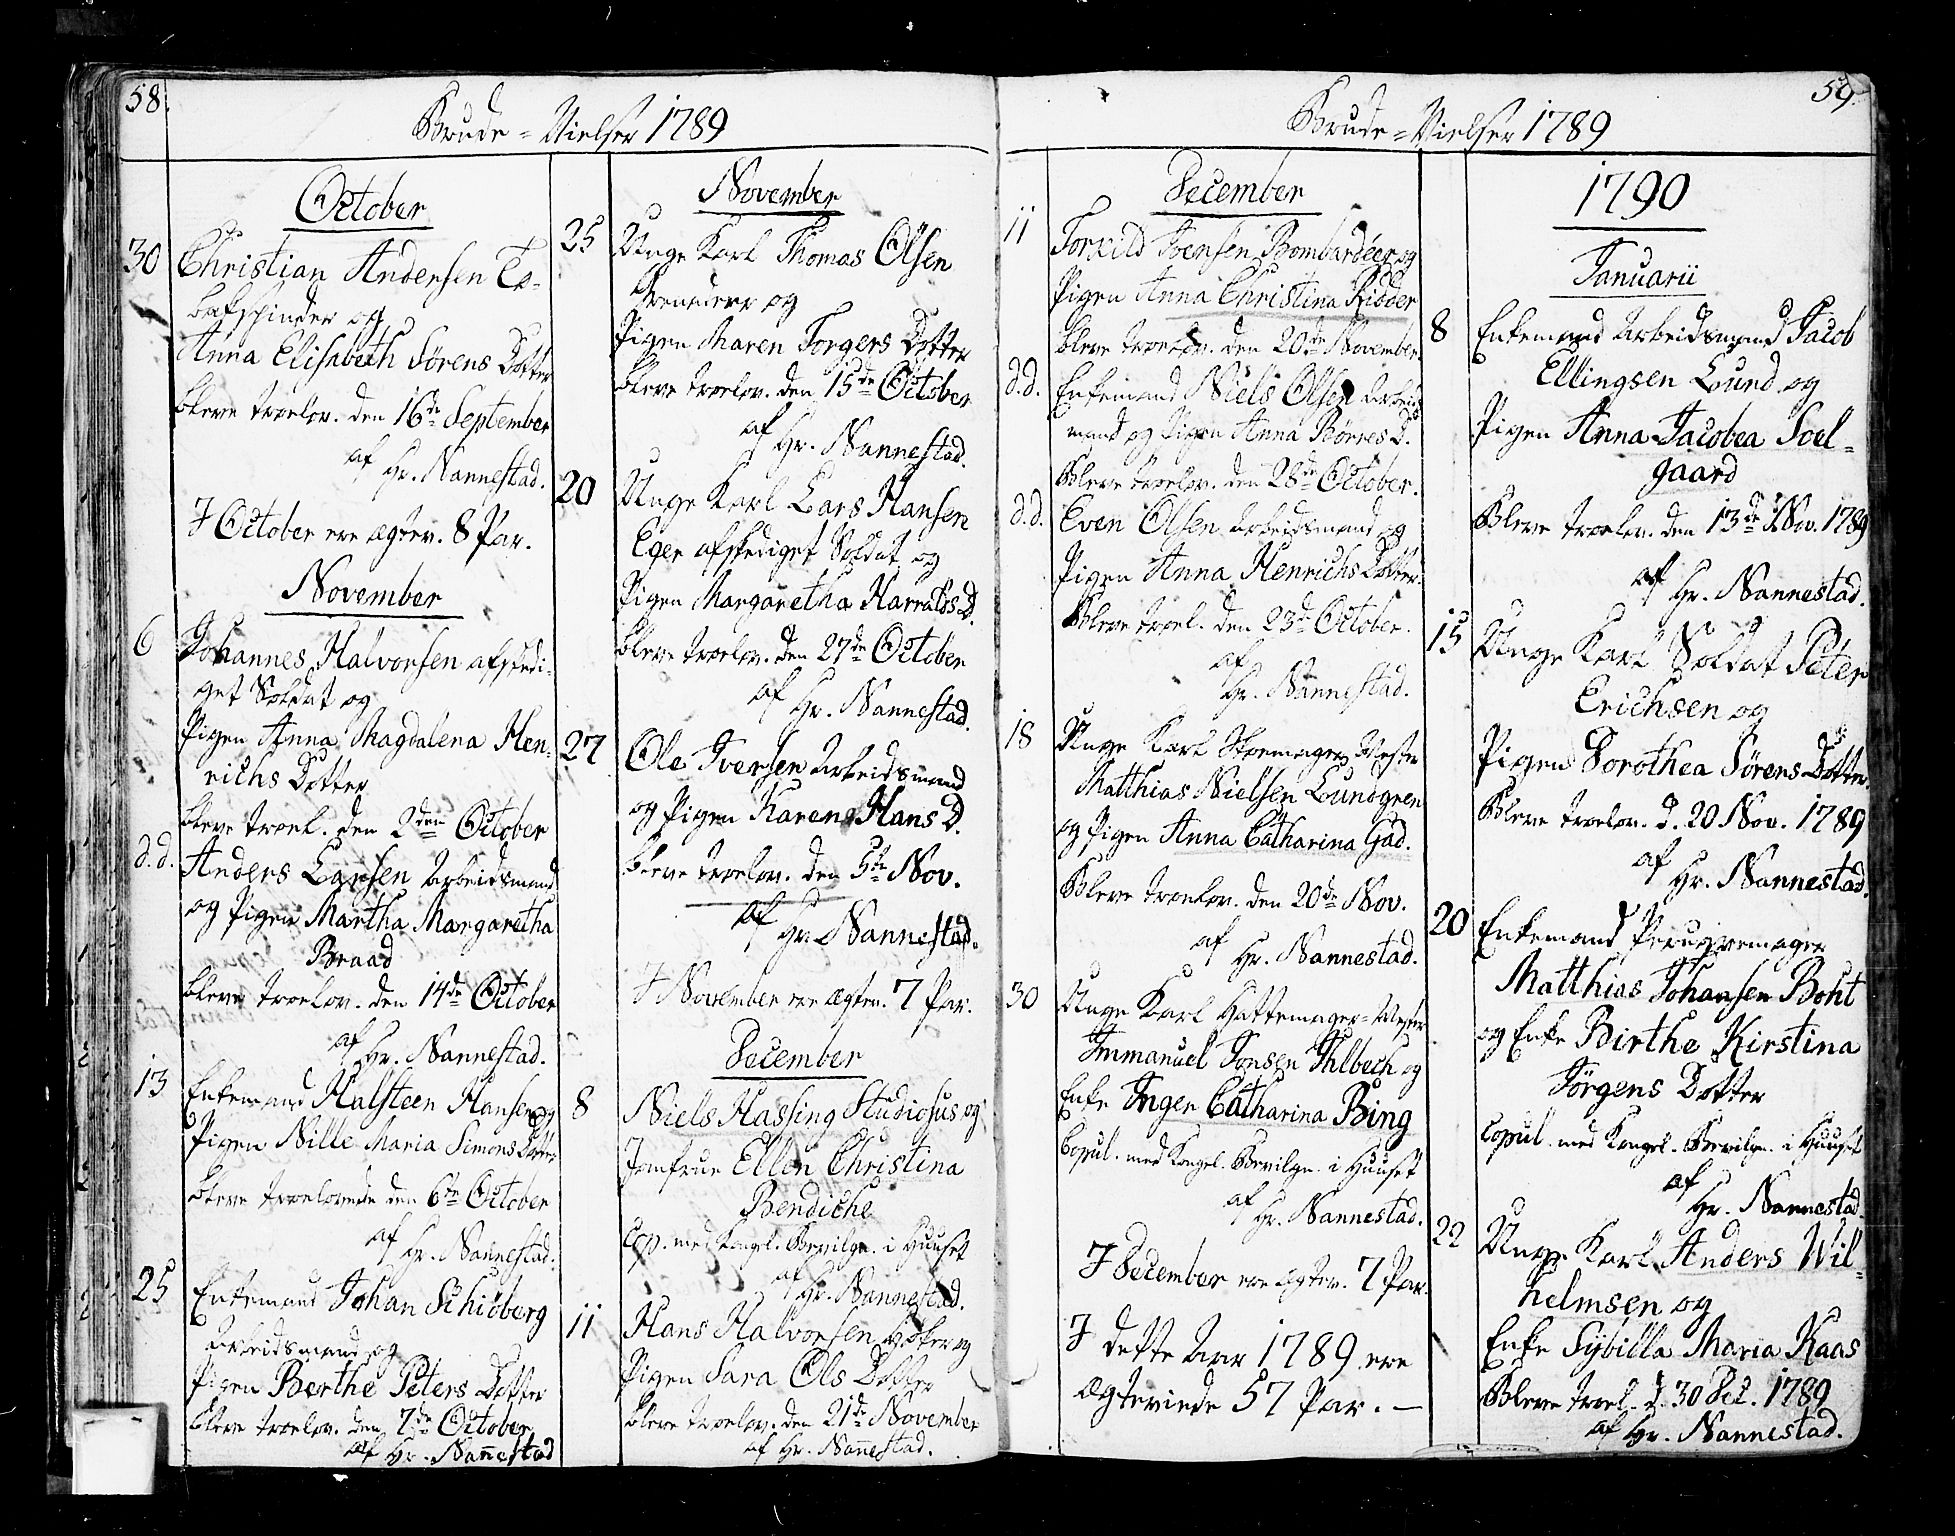 58.
Brude-Vielser 1789
October
30 Christian Andersen To-
bakspinder og
Anna Elisabeth Sörens Dotter
bleve troelov. den 16de September
af Hr. Nannestad.
I October ere ægtev. 8 Par.
November
6 Johannes Halvorsen afskedi-
get Soldat og
Pigen Anna Magdalena Hen-
richs Dotter
bleve troel. den 2den October
d.d. Anders Larsen Arbeidsmand
og Pigen Martha Margaretha
Braad
bleve troelov. den 14de October
af Hr. Nannestad.
13 Enkemand Halsteen Hansen og
Pigen Nille Maria Simons Dotter
bleve troelovede den 6te October
af Hr. Nannestad.
25 Enkemand Johan Schiöberg
Arbeidsmand og
Pigen Berthe Peters Dotter
bleve troelov. den 7de October
af Hr. Nan̄estad
November
25 Unge Karl Thomas Olsen
Grenadeer og
Pigen Maren Torgers Dotter
bleve troelov. den 15de October
af Hr. Nannestad.
20 Unge Karl Lars Hansen
Eger afskediget Soldat og
Pigen Margaretha Harralds D.
bleve troelov. den 27de October
af Hr. Nannestad.
27 Ole Iversen Arbeidsmand
og Pigen Karen Hans D.
bleve troelov. den 5te Nov.
af Hr. Nannestad.
I November ere ægtev. 7 Par.
December
8 Niels Hassing Studiosus og
Jomfrue Ellen Christina
Bendiche
Cop. med Kongel. Bevilgn. i Huuset
af Hr. Nannestad.
11 Hans Halvorsen Höker og
Pigen Sara Ols Dotter
bleve troelov. den 21de November
af Hr. Nan̄estad.
59.
Brude-Vielser 1789
December
11 Torkild Joensen Bombardéer og
Pigen Anna Christina Ridder
bleve troelov. den 20de November
d.d. Enkemand Niels Olsen Arbeids
mand og Pigen Anna Börres D.
Bleve troelov. den 28de October.
d.d. Even Olsen Arbeidsmand og
Pigen Anna Henrichs Dotter.
Bleve troel. den 23de October.
af Hr. Nannestad.
18 Unge Karl Skoemager Mester
Matthias Nielsen Lundgreen
og Pigen Anna Catharina Gad.
Bleve troelov. den 20de Nov.
af Hr. Nannestad.
30 Unge Karl Hattemager-Mester
Immanuel Jonsen Ihlbech og
Enke Inger Catharina Bing
Copul. med Kongel. Bevilgn. i Huuset
af Hr. Nannestad.
I December ere ægtev. 7 Par.
I dette Aar 1789 ere
Ægteviede 57 Par. —
1790
Januarii
8 Enkemand Arbeidsmand Jacob
Ellingsen Lund og
Pigen Anna Jacobea Soel-
gaard
Bleve troelov. den 13de Nov. 1789
af Hr. Nannestad.
15 Unge Karl Soldat Peter
Erichsen og
Pigen Dorothea Sörens Dotter.
Bleve troelov. d. 20 Nov. 1789
af Hr. Nannestad.
20 Enkemand Peruqvemager
Matthias Johansen Boht
og Enke Birthe Kirstina
Jörgens Dotter
Copul. med Kongel. Bevilgn. i Huuset
af Hr. Nannestad.
22 Unge Karl Anders Wil-
helmsen og
Enke Sybilla Maria Kaas
Bleve troel. d. 30 Dec. 1789
af Hr. Nannestad.